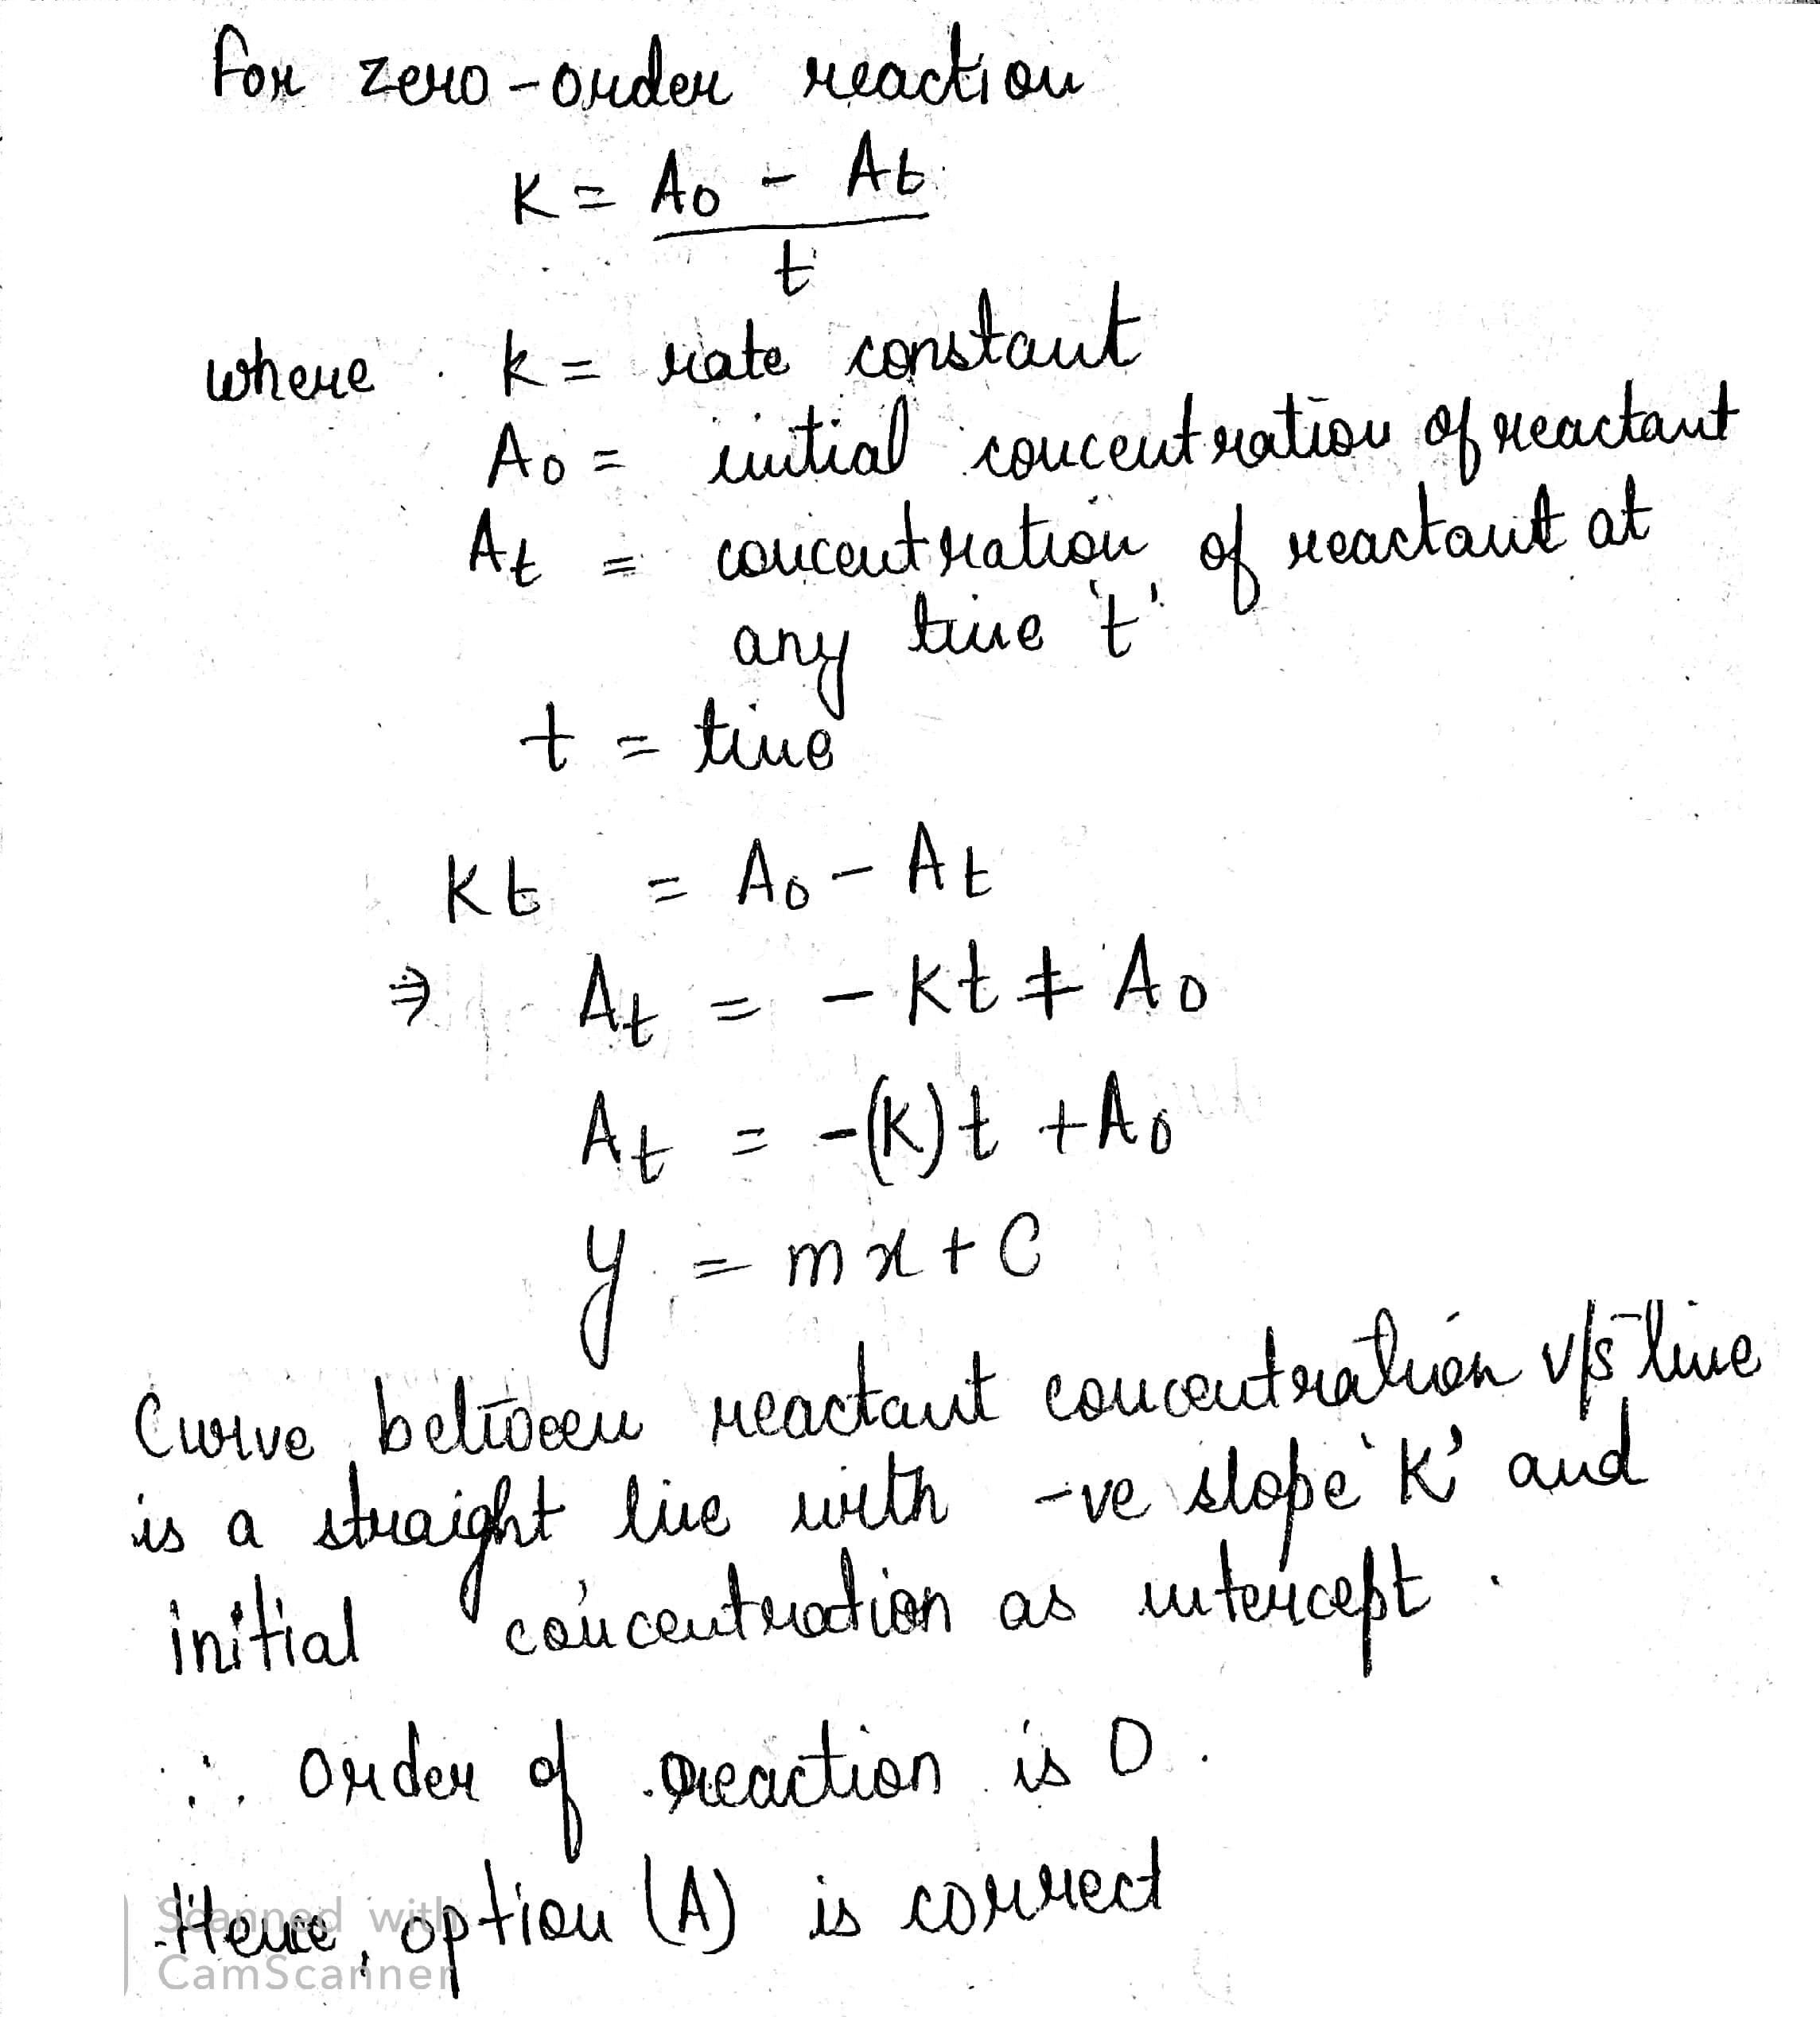 For zero-order reaction
K = A0 - At
t
where k = rate constant
A0 = initial concentration of reactant
At = concentration of reactant at
any time 't'
t = time
Kt = A0 - At
⇒ At = - Kt + A0
At = -(K)t + A0
y = mx + C
Curve between reactant concentration v/s time
is a straight line with -ve slope 'K' and
initial concentration as intercept.
∴ Order of reaction is 0.
Hence, option (A) is correct
Scanned with
CamScanner